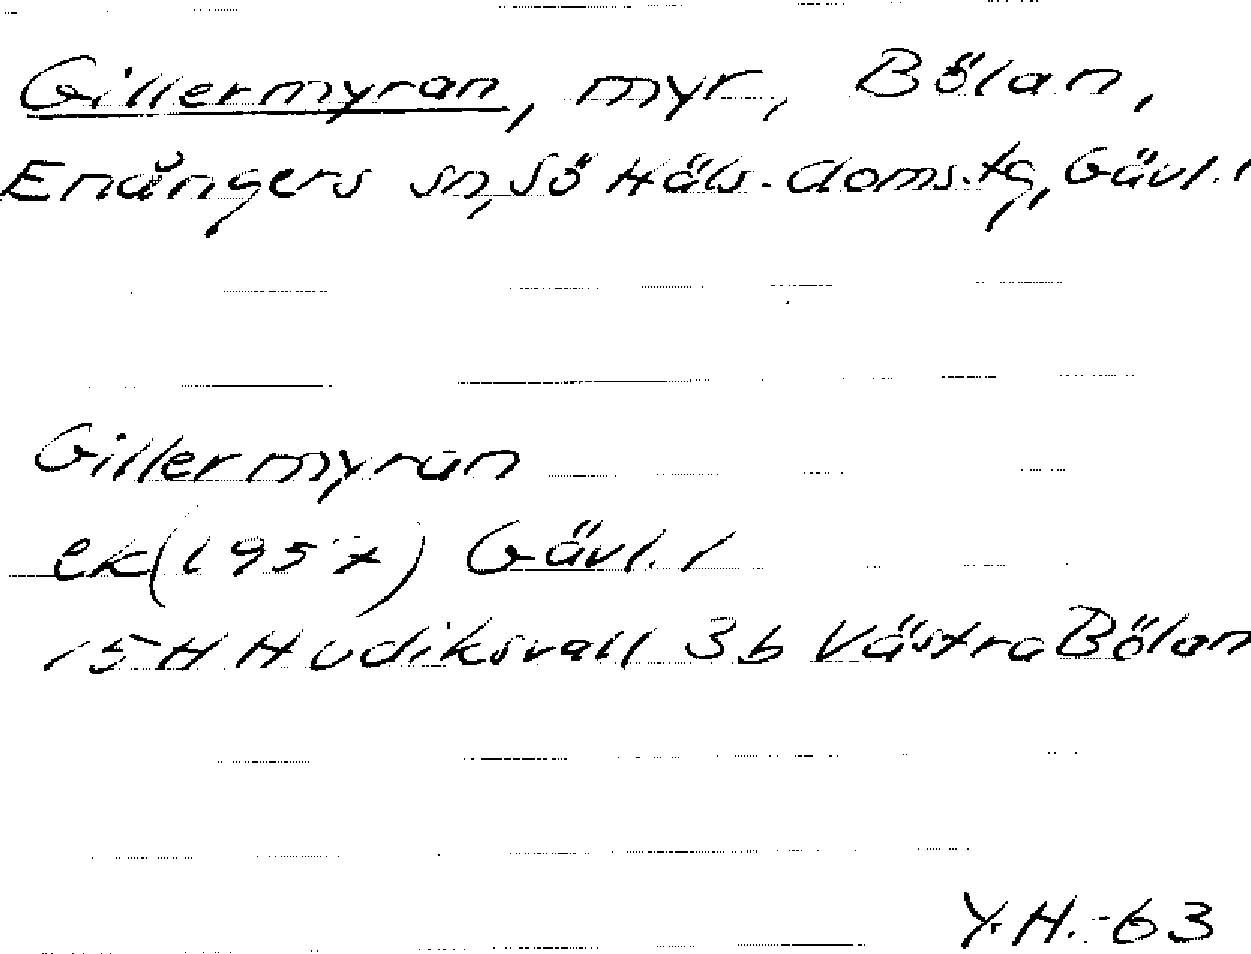 Gillermyran, myr, Bölan,
Enångers sn, Sö Häls. doms.tg, Gävl. l
Gillermyran
ek (1957) Gävl. l
15 H Hudiksvall 3b Västra Bölan
Y.H.-63